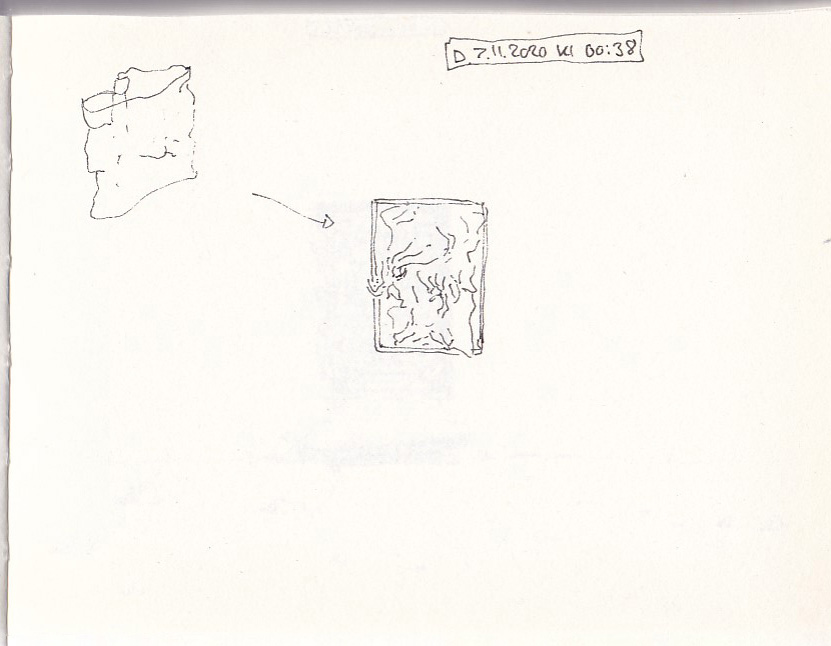 D 7.11.2020 kl 00:38